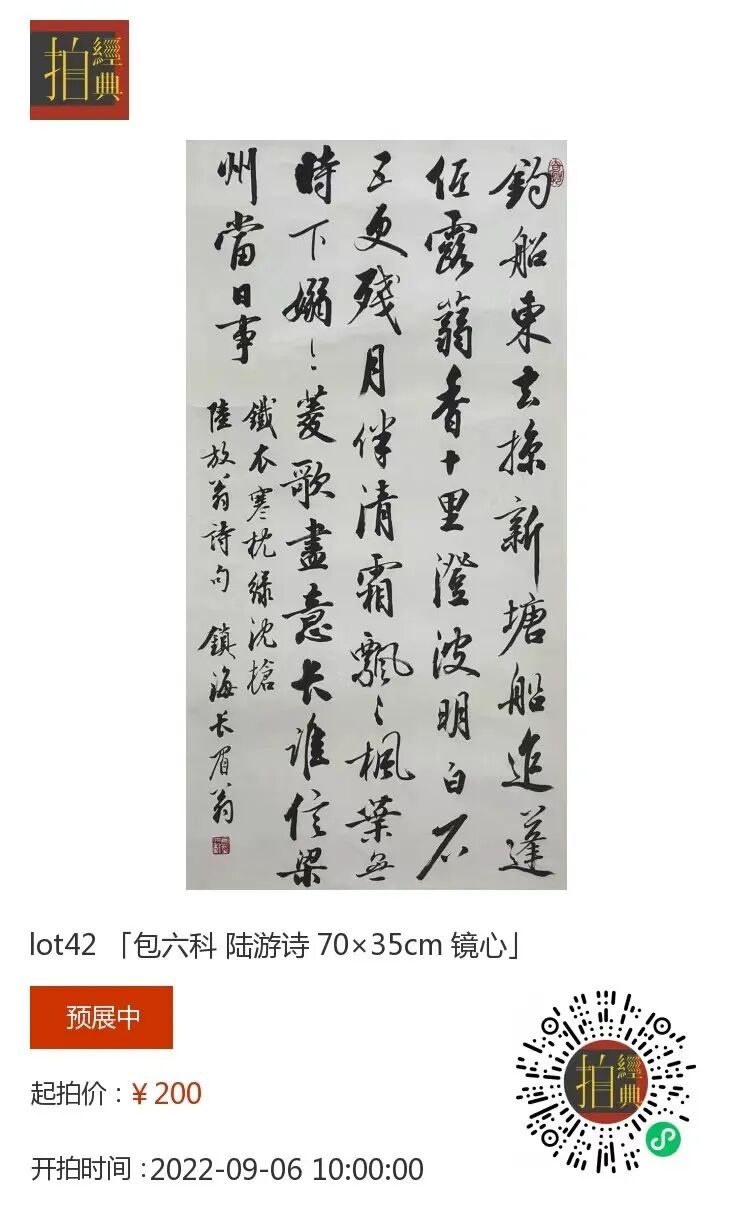 經典拍
釣船東去掠新塘船迮蓬
低露蒻香十里澄波明白石
五更殘月伴清霜飄〻楓葉無
時下嫋〻菱歌盡意长誰信梁
州當日事
鐵衣寒枕緑沈槍
陸放翁詩句 鎮海长眉翁
lot42 「包六科 陆游诗 70×35cm 镜心」
预展中
起拍价：¥ 200
开拍时间：2022-09-06 10:00:00
經典拍